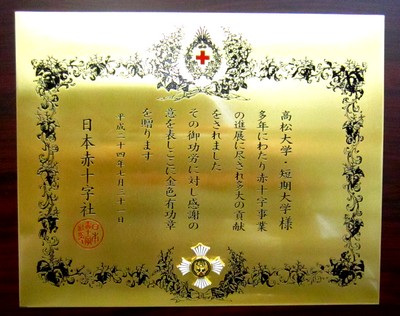 高松大学・短期大学様
多年にわたり赤十字事業
の進展に尽され多大の貢献
をされました
その御功労に対し感謝の
意を表しここに金色有功章
を贈ります
平成二十四年七月三十一日
日本赤十字社